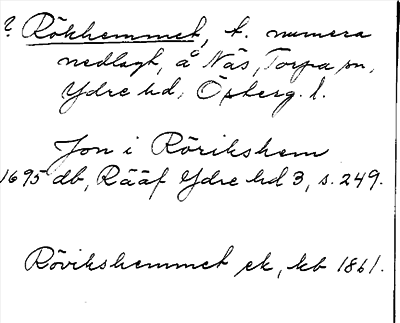 ? Rökhemmet, t. numera
nedlagt, å Näs, Torpa sn,
Ydre hd, Österg. l.
Jon i Rörikshem
1695 db, Rääf Ydre hd 3, s. 249.
Rövikshemmet ek, kb 1861.